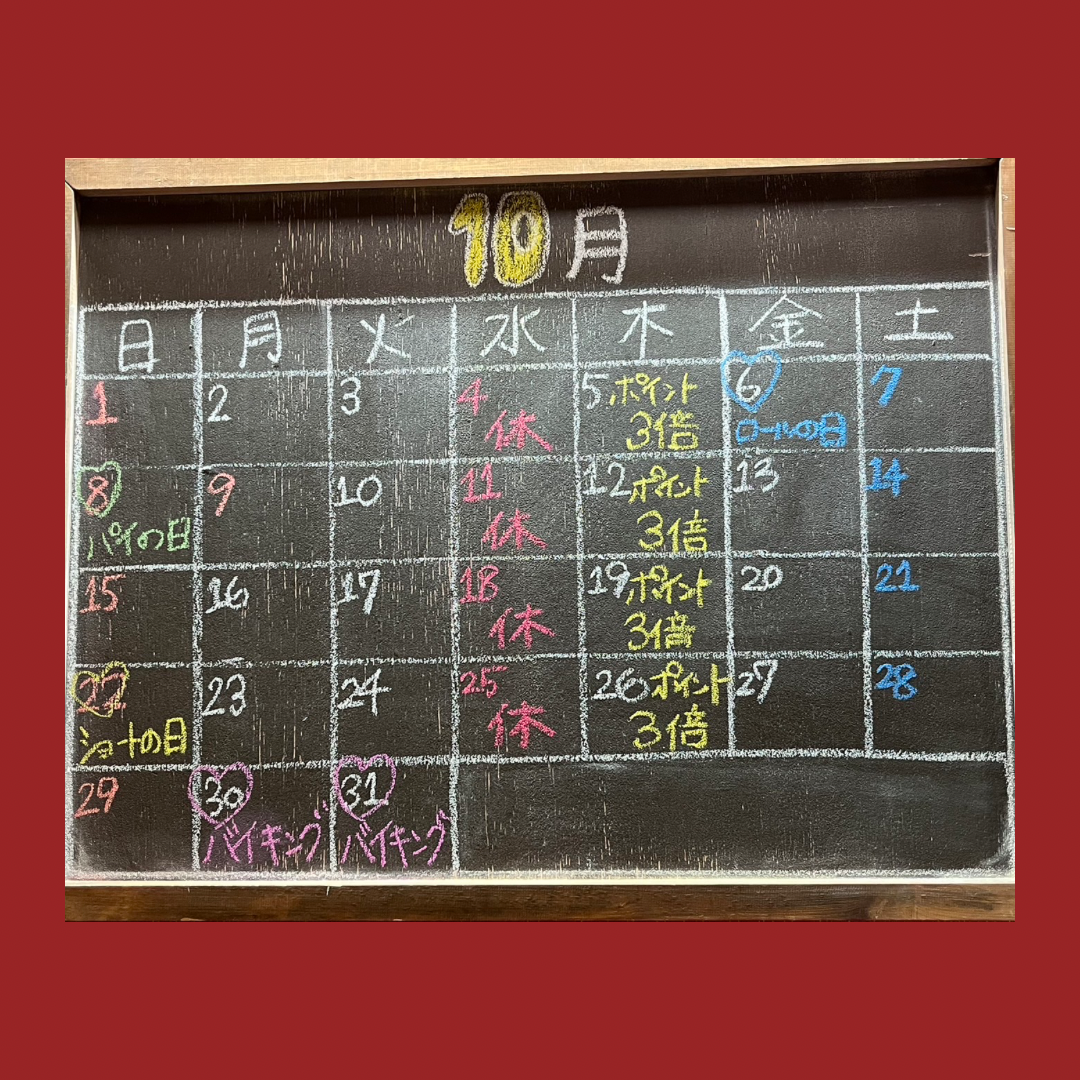 10月
日 月 火 水 木 金 土
1 2 3 4 5 ポイント 6 7
休 3倍 ロールの日
8 9 10 11 12 ポイント 13 14
パイの日 休 3倍
15 16 17 18 19 ポイント 20 21
休 3倍
22 23 24 25 26 ポイント 27 28
ショートの日 休 3倍
29 30 31
バイキング バイキング